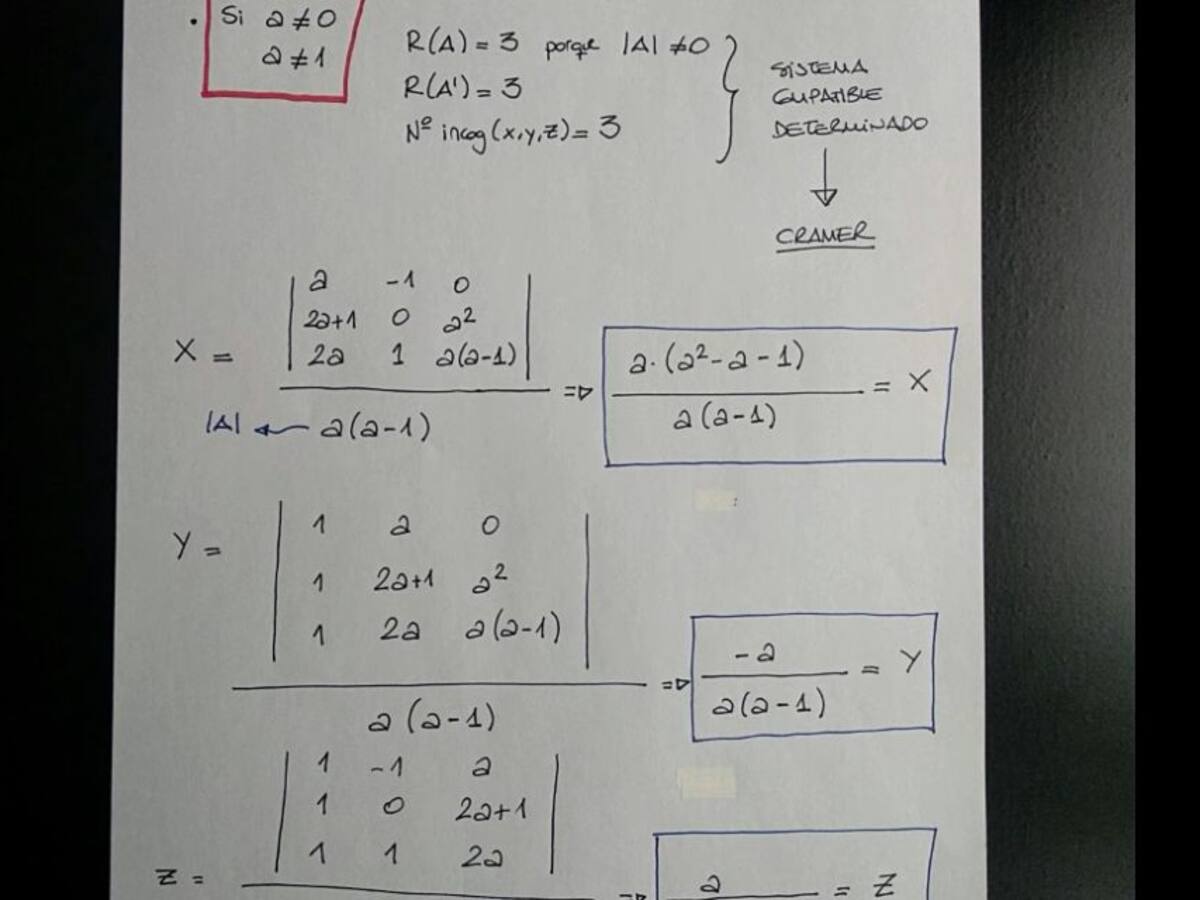 . Si a ≠ 0
a ≠ 1
R(A) = 3 porque |A| ≠ 0
R(A') = 3
Nº incog (x,y,z) = 3
SISTEMA
COMPATIBLE
DETERMINADO
CRAMER
| a -1 0 |
| 2a+1 0 a² |
| 2a 1 a(a-1) |
X =
|A| ← a(a-1)
⇒ a·(a²-a-1)
a(a-1)
= X
| 1 a 0 |
Y =
| 1 2a+1 a² |
| 1 2a a(a-1) |
a(a-1)
⇒ -a
a(a-1)
= Y
| 1 -1 a |
| 1 0 2a+1 |
| 1 1 2a |
Z =
⇒ a
= Z